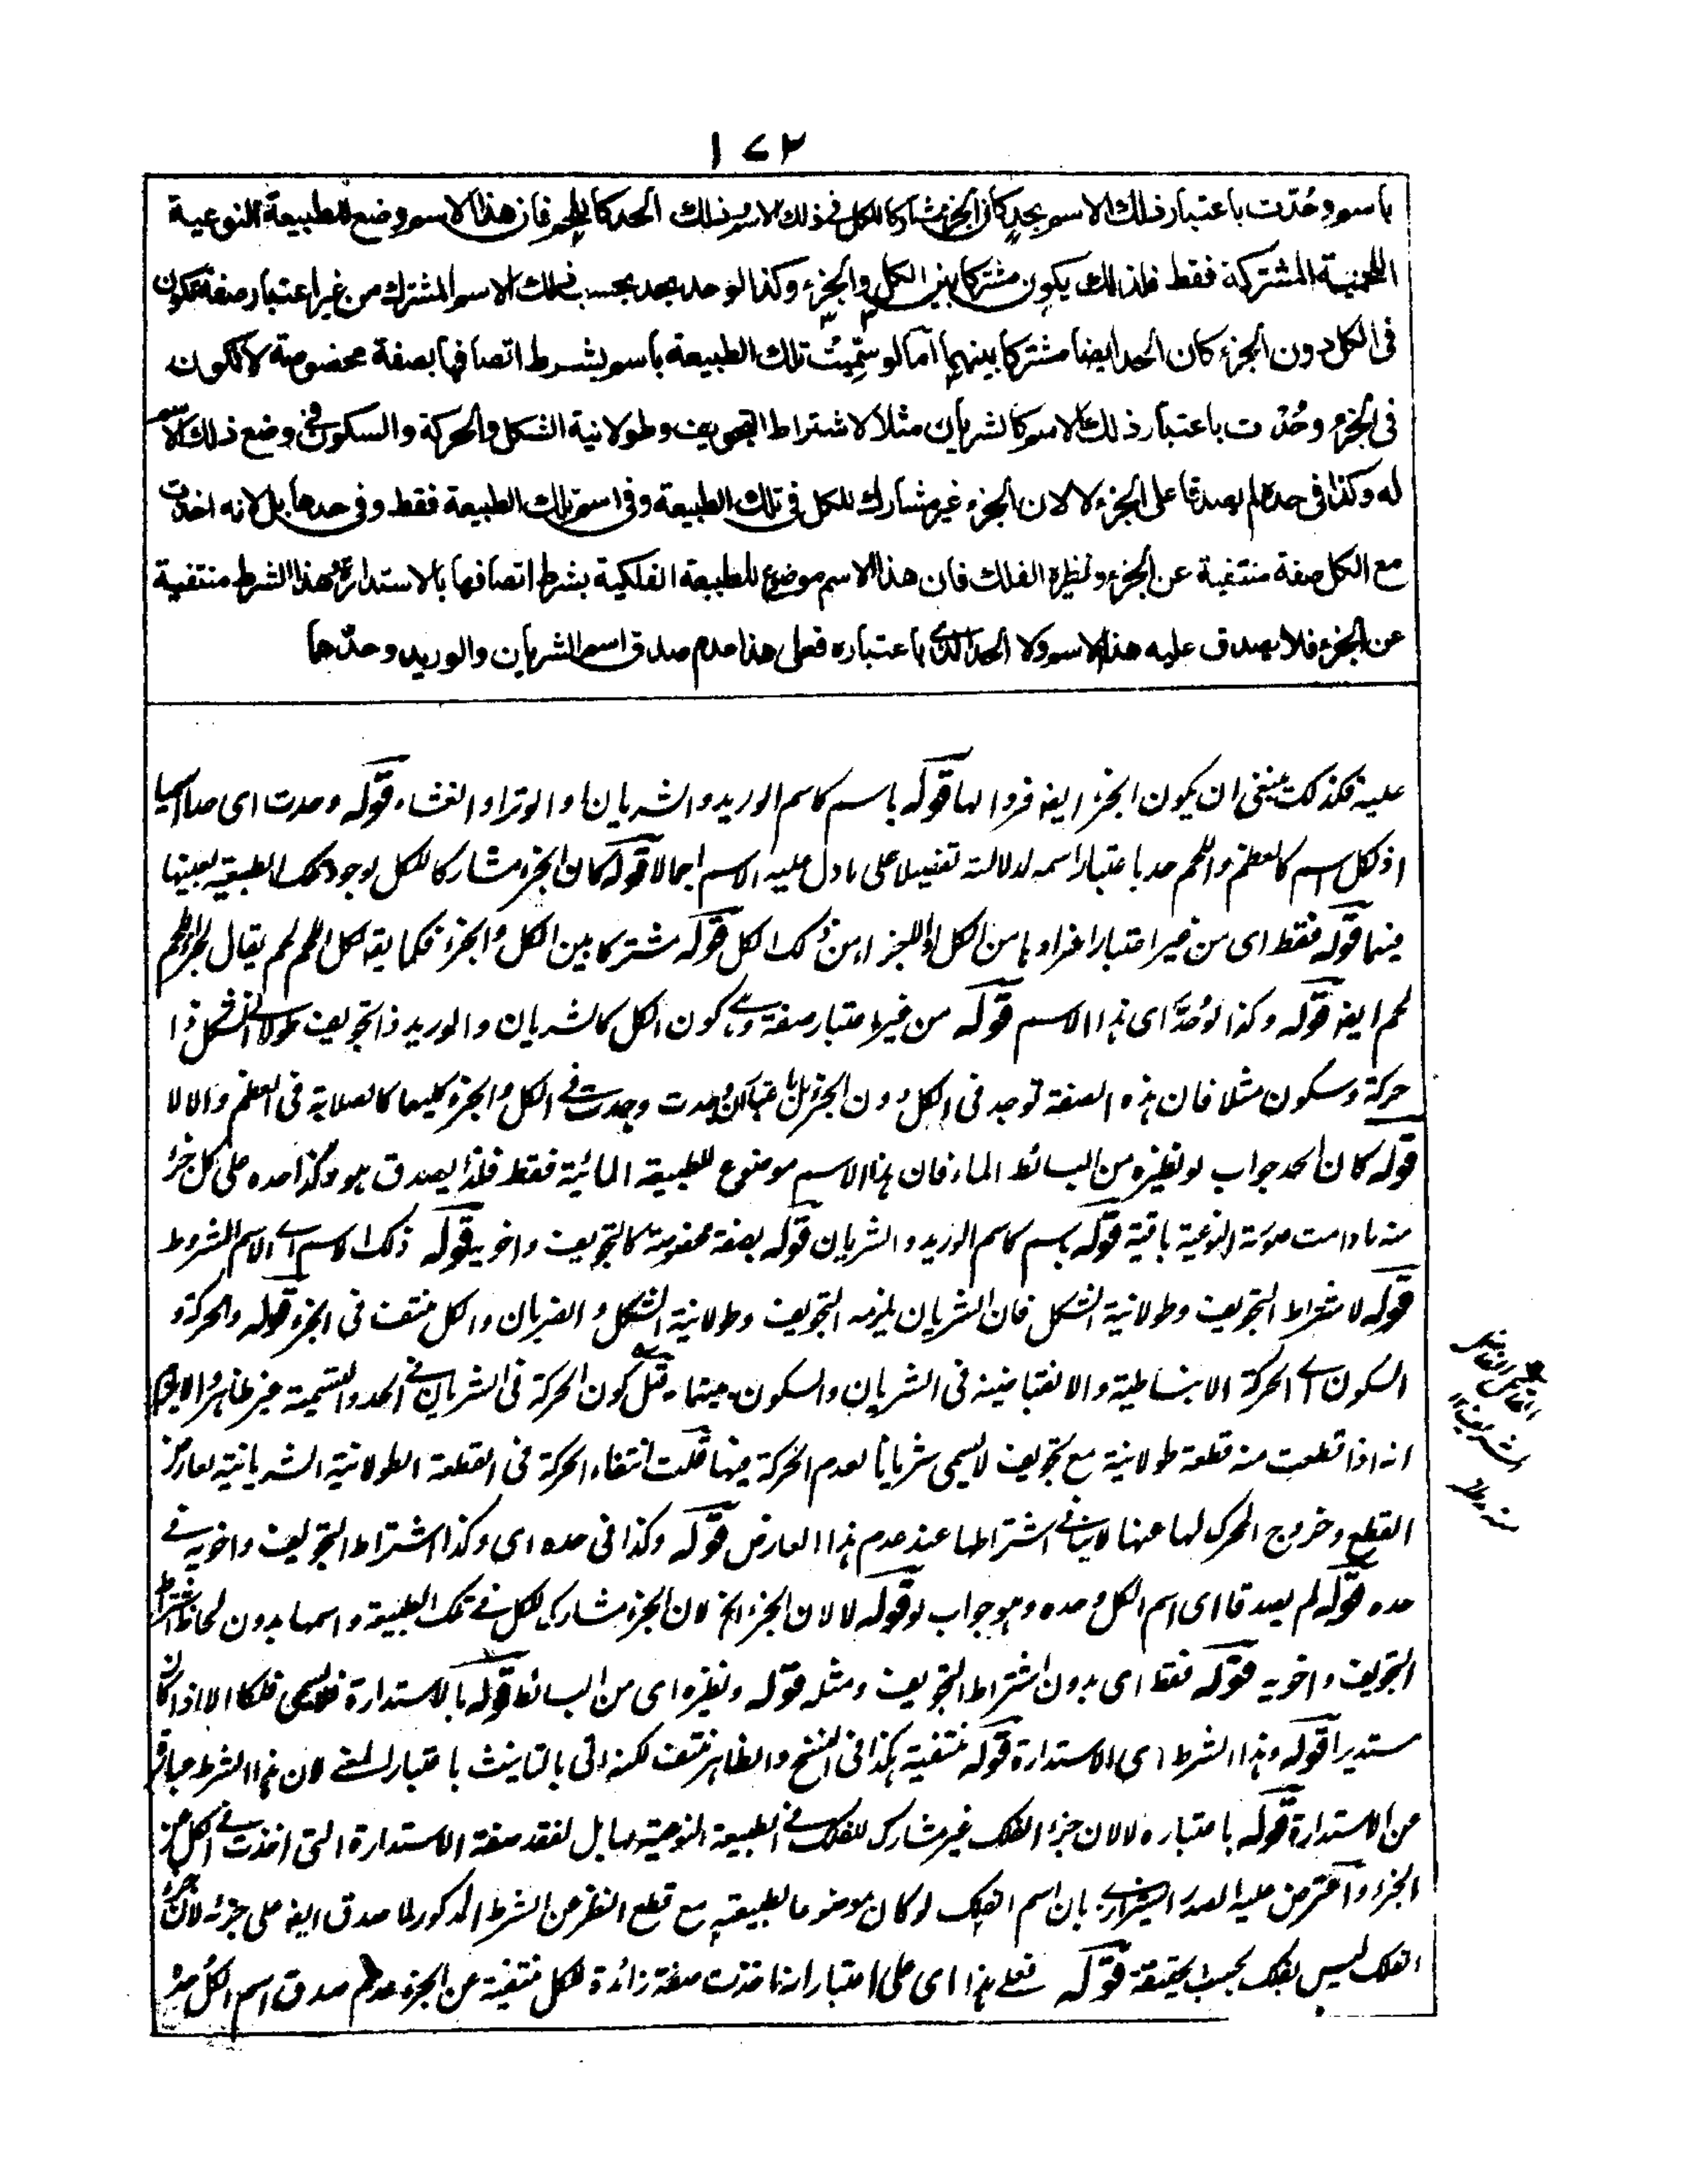 ١٧٢
باسم وحُدّت باعتبار ذلك الاسم بحدٍ كان الجزء مشاركا للكل فى ذلك الاسم وذلك الحد كاللحم فان هذا الاسم وضع للطبيعة النوعية
اللحمية المشتركة فقط فلذالك يكون مشتركا بين الكل والجزء وكذا لو حد بحد بحسب ذلك الاسم المشترك من غير اعتبار صفة تكون
فى الكل دون الجزء كان الحد ايضا مشتركا بينهما اما لو سُمّيت تلك الطبيعة باسم بشرط اتصافها بصفة مخصوصة لا تكون
فى الجزء وحُدّت باعتبار ذلك الاسم كالشريان مثلا لاشتراط التجويف وطولانية الشكل والحركة والسكون فى وضع ذلك الاسم
له وكذا فى حده لم يصدقا على الجزء لا لان الجزء غير مشارك للكل فى تلك الطبيعة وفى اسم تلك الطبيعة فقط وفى حدها بل لانه اخذت
مع الكل صفة منتفية عن الجزء ونظيره الفلك فان هذا الاسم موضوع للطبيعة الفلكية بشرط اتصافها بالاستدارة وهذا الشرط منتفية
عن الجزء فلا يصدق عليه هذا الاسم ولا الحد الذى باعتباره فعلى هذا عدم صدق اسم الشريان والوريد وحدّهما
عليه فكذلك ينبغى ان يكون الجزء ايضا فردا لها قوله باسم كاسم الوريد والشريان والوتر والغشاء قوله وحدت اى حدا اسميا
اذ لكل اسم كالعظم واللحم حد باعتبار اسمه لدلالته تفصيلا على ما دل عليه الاسم اجمالا قوله كان الجزء مشاركا للكل لوجود تلك الطبيعة بعينها
فيهما قوله فقط اى من غير اعتبار افرادها من الكل او الجزء من ذلك الكل قوله مشتركا بين الكل والجزء فكما يقا لكل اللحم لحم يقال لجزء اللحم
لحم ايضا قوله وكذا لو حُدّ اى هذا الاسم قوله من غير اعتبار صفة وهى كون الكل كالشريان والوريد ذا تجويف طولانى الشكل ذا
حركة وسكون مثلا فان هذه الصفة توجد فى الكل دون الجزء وجدت فى الكل والجزء كليهما كالصلابة فى العظم والا لا
قوله كان الحد جواب لو نظيره من البسائط الماء فان هذا الاسم موضوع للطبيعة المائية فقط فلذا يصدق هو وكذا حده على كل جزء
منه ما دامت صورته النوعية باقية قوله باسم كاسم الوريد والشريان قوله بصفة مخصوصة كالتجويف واخويه قوله ذلك الاسم اے الاسم المشروط
قوله لاشتراط التجويف وطولانية الشكل فان الشريان يلزمه التجويف وطولانية الشكل والضربان والكل منتف فى الجزء قوله والحركة و
السكون اے الحركة الانبساطية والانقباضية فى الشريان والسكون بينهما قيل كون الحركة فى الشريان فى الحد والتسمية غير ظاهر والا لزم
انه اذا قطعت منه قطعة طولانية مع تجويف لا يسمى شريانا لعدم الحركة فيها قلت انتفاء الحركة فى القطعة الطولانية الشريانية لعارض
القطع وخروج المحرك لها عنها لا ينافى اشتراطها عند عدم هذا العارض قوله وكذا فى حده اى وكذا اشتراط التجويف واخويه فى
حده قوله لم يصدقا اى اسم الكل وحده وهو جواب لو قوله لا لان الجزء الخ لان الجزء مشارك للكل فى تلك الطبيعة واسمها بدون لحاظ اشتراط
التجويف واخويه قوله فقط اى بدون اشتراط التجويف ومثله قوله ونظيره اى من البسائط قوله بالاستدارة فلا يسمى فلكا الا اذا كان
مستديرا قوله وهذا الشرط اى الاستدارة قوله منتفية هكذا فى النسخ والظاهر منتف لكنه اتى بالتانيث باعتبار المعنے لان هذا الشرط عبارة
من الاستدارة قوله باعتباره لا لان جزء الفلك غير مشارك للفلك فى الطبيعة النوعية لها بل لفقد صفة الاستدارة التى اخذت فى الكل عن
الجزء واعترض عليه الصدر الشيرازى بان اسم الفلك لو كان موضوعا لطبيعته مع قطع النظر عن الشرط المذكور لما صدق ايضا على جزئه لان جزء
الفلك ليس بفلك بحسب الحقيقة قوله فعلے هذا اى على اعتبار انه اخذت صفة زائدة للكل منتفية عن الجزء عدم صدق اسم الكل